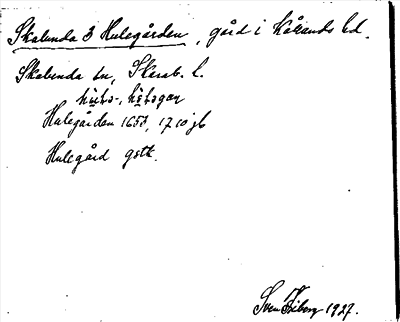 Skalunda 3 Hulegården, gård i Kållands hd.
Skalunda sn, Skarab. l.
Hulegården 1655, 1710 jb
Hulegård gstk.
Sven Ekberg 1927.